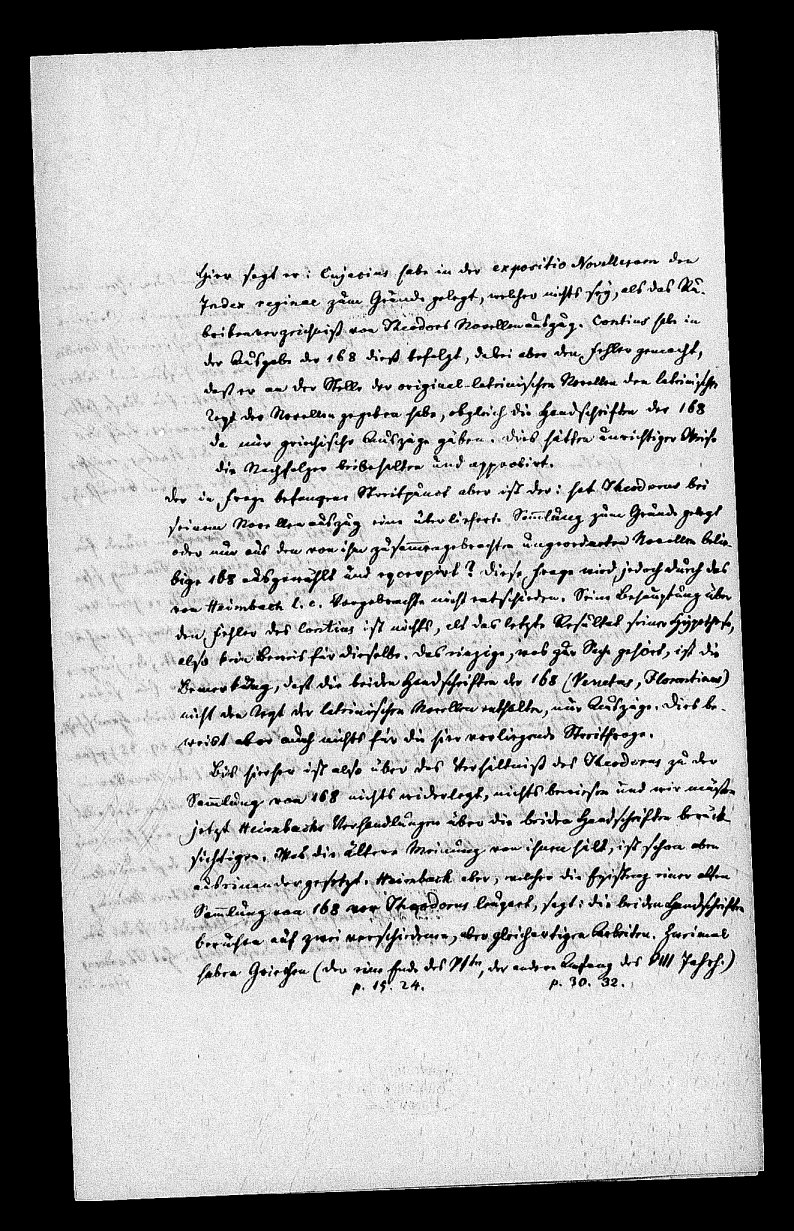 Hier sagt er: Cujacius habe in der expositio Novellarum den
Index reginae zum Grunde gelegt, welcher nichts sey, als das Ru-
brikenverzeichniß von Theodors Novellenauszug. Contius habe in
der Ausgabe der 168 dieß befolgt, dabei aber den Fehler gemacht,
daß er an der Stelle der original-lateinischen Novellen den lateinischen
Text der Novellen gegeben habe, obgleich die Handschriften der 168
da nur griechische Auszüge gäben. Dies hätten unrichtiger Weise
die Nachfolger beibehalten und approbirt.
Der in Frage befangene Streitpunct aber ist der: hat Theodorus bei
seinem Novellenauszug eine überlieferte Sammlung zum Grunde gelegt
oder nur aus den von ihm zusammengebrachten ungeordneten Novellen belie-
bige 168 ausgewählt und excerpirt? Diese Frage wird jedoch durch das
von Heimbach l. c. Vorgebrachte nicht entschieden. Seine Behauptung über
den Fehler des Contius ist nichts, als das letzte Resultat seiner Hypothese,
also kein Beweis für dieselbe. Das einzige, was zur Sache gehört, ist die
Bemerkung, daß die beiden Handschriften der 168 (Venetus, Florentinus)
nicht den Text der lateinischen Novellen enthalten, nur Auszüge. Dies be-
weist aber auch nichts für die hier vorliegende Streitfrage.
Bis hierher ist also über das Verhältniß des Theodorus zu der
Sammlung von 168 nichts widerlegt, nichts bewiesen und wir müssen
jetzt Heimbachs Verhandlungen über die beiden Handschriften berück-
sichtigen. Was die ältere Meinung von ihnen hält, ist schon oben
auseinander gesetzt. Heimbach aber, welcher die Existenz einer alten
Sammlung von 168 vor Theodorus leugnet, sagt: die beiden Handschriften
beruhen auf zwei verschiedenen, aber gleichartigen Arbeiten. Zweimal
haben Griechen (der eine Ende des VIten, der andere Anfang des VIII Jahrh.)
p. 15. 24. p. 30. 32.